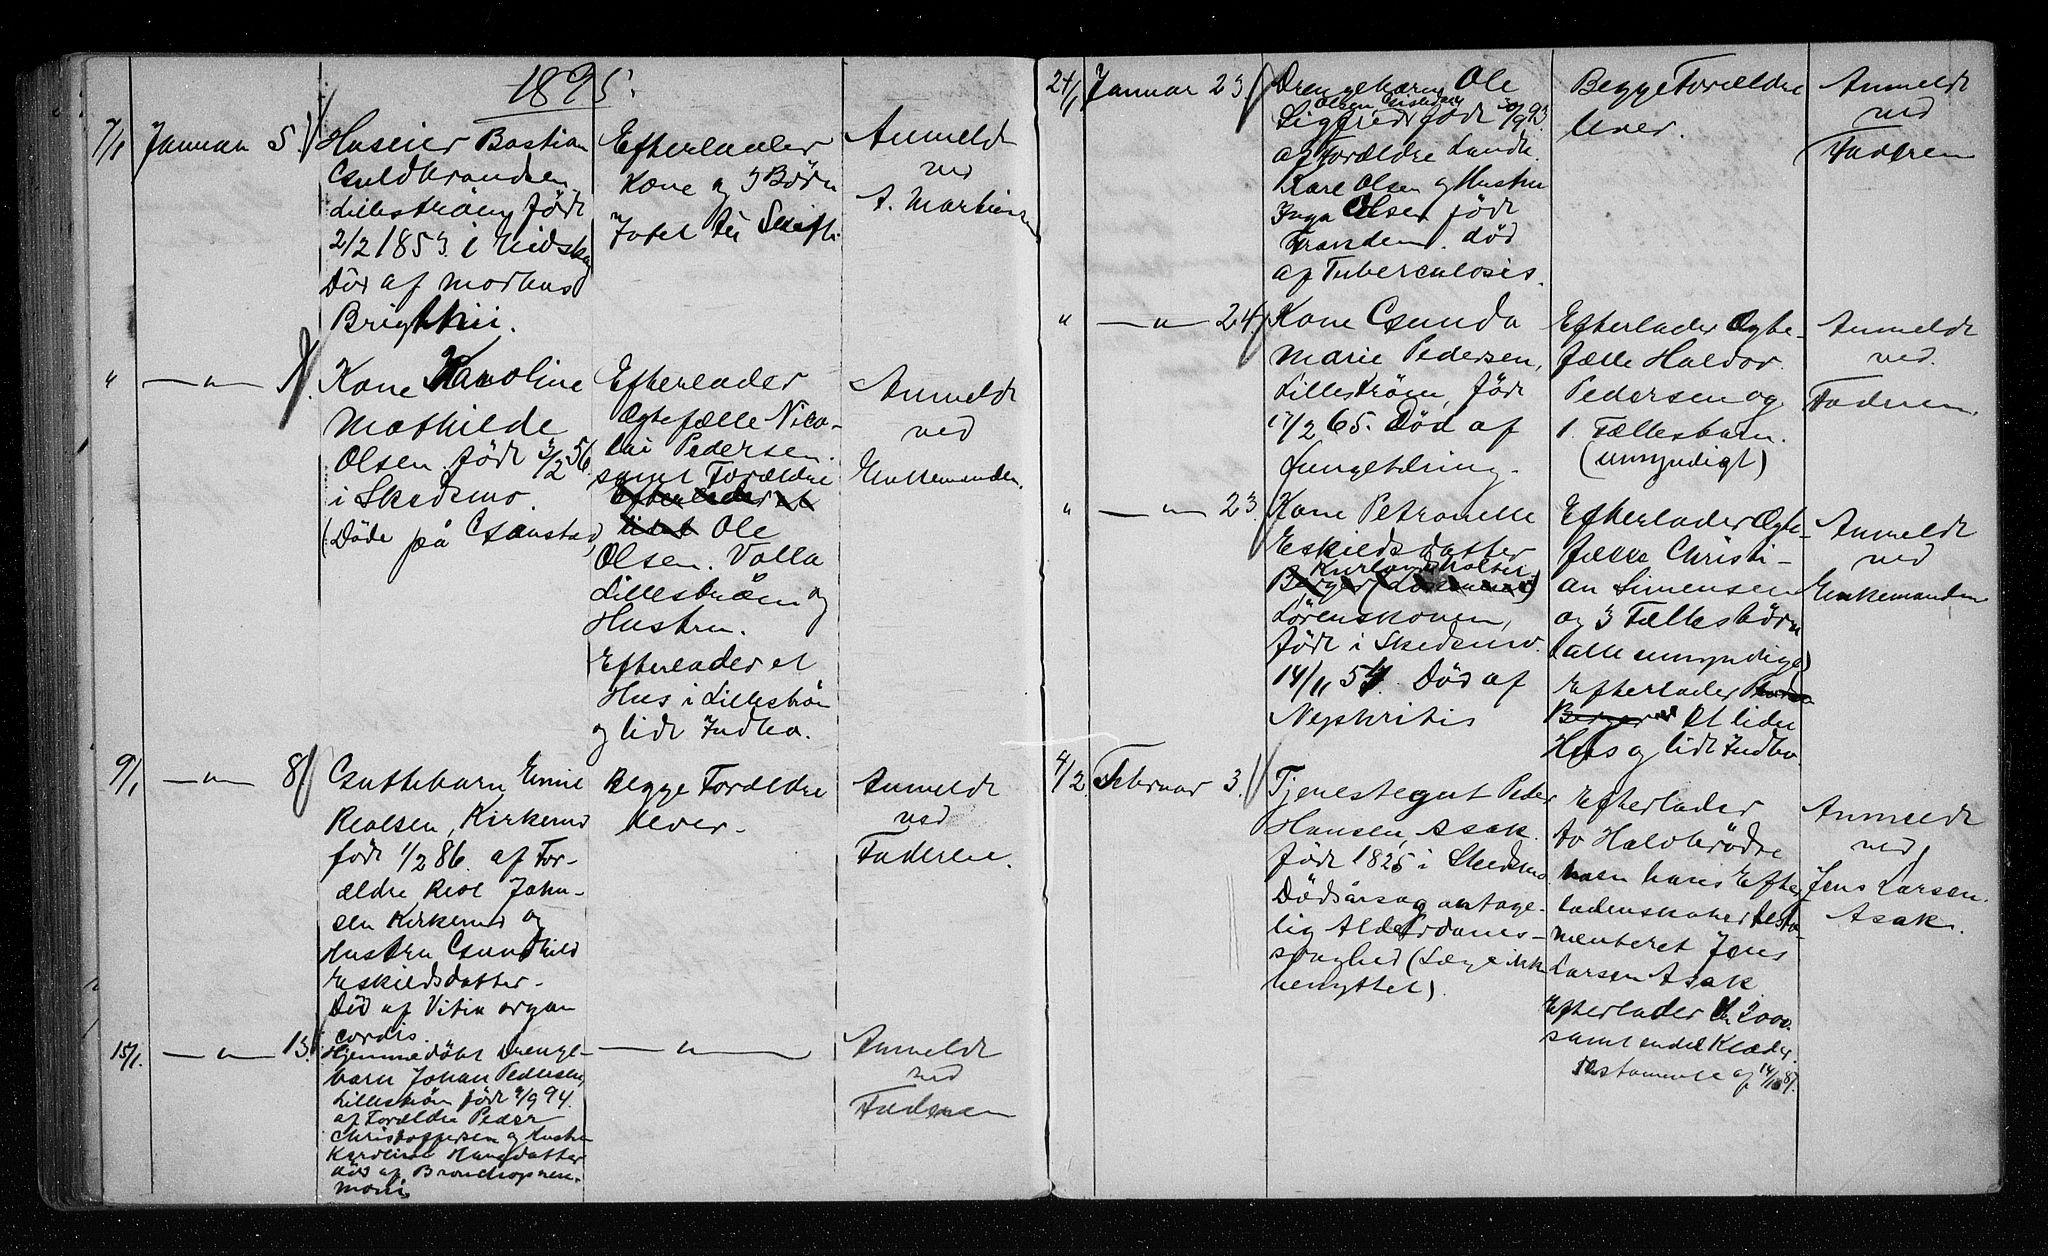 1895.
7/1 Januar 5.
Huseier Bastian
Guldbrandsen
Lillestrøm, født
2/2 1853 i Eidskog
Død af morbus
Brightii.
Efterlader
Kone og 3 Børn
Intet til Skifte
Anmeldt
ved
A. Martinsen
" — " —
Kone Karoline
Mathilde
Olsen født 3/2 56.
i Skedsmo.
(Døde på Gaustad)
Efterlader
Ægtefælle Nico-
lai Pedersen
samt Forældre
Efterlader et
lidet Ole
Olsen. Volla
Lillestrøm og
Hustru.
Efterlader et
Hus i Lillestrøm
og lidt Indbo.
Anmeldt
ved
Enkemanden.
9/1 — " — 8
Guttebarn Emil
Reolsen, Kirkerud
født 1/2 86. af For-
ældre Reol Johan-
sen Kirkerud og
Hustru Gunhild
Eskildsdatter.
Død af Vitia organ
cordis.
Begge Forældre
lever.
Anmeldt
ved
Faderen.
15/1. — " — 13.
Hjemmedøbt Drenge-
barn Johan Pedersen,
Lillestrøm født 9/9 94.
af Forældre Peder
Christoffersen og Hustru
Karoline Hansdatter
død af Bronchopneu-
moni
— " —
Anmeldt
ved
Faderen
24/1 Januar 23.
Drengebarn Ole
Olsen
Sigfried født 30/9 93.
af Forældre Landh.
Kare Olsen og Hustru
Inga Olsen født
Tranden. død
af Tuberculosis.
Begge Forældre
lever.
Anmeldt
ved
Faderen
" — " — 24.
Kone Gunda
Marie Pedersen,
Lillestrøm, født
17/2 65. Død af
Lungetæring.
Efterlader Ægte-
fælle Haldor
Pedersen og
1 Fællesbarn.
(umyndigt)
Anmeldt
ved
Faderen.
" — " — 23.
Kone Petronelle
Eskildsdatter
Lørenskoven,
født i Skedsmo
14/11 54. Død af
Nephritis
Efterlader Ægte-
fælle Christi-
an Simensen
og 3 Fællesbørn
(alle umyndige)
Efterlader
Et lidet
Hus og lidt Indbo
Anmeldt
ved
Enkemanden
4/2 Februar 3.
Tjenestegut Peder
Hansen, Asak.
født 1825 i Skedsmo.
Dødsårsag antage-
lig Alderdoms-
svaghed (Læge ikke
benyttet).
Efterlader
to Halvbrødre
men hans Efter-
ladenskaber testa-
menteret Jens
Larsen Asak
Efterlader 2000.
samt endel Klæder.
Testamente af 14/10 87.
Anmeldt
ved
Jens Larsen
Asak.